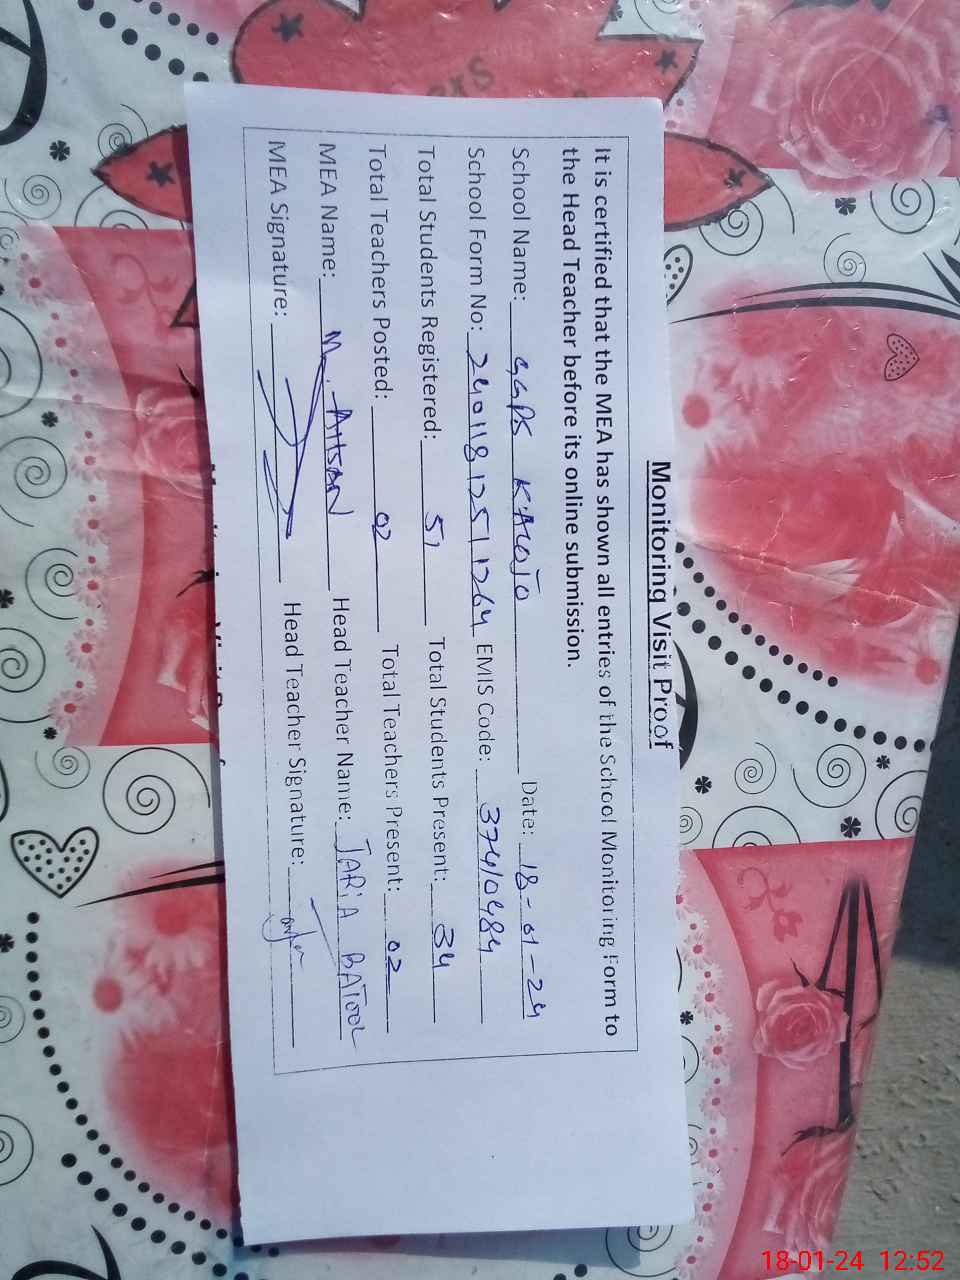 Monitoring Visit Proof
It is certified that the MEA has shown all entries of the School Monitoring Form to
the Head Teacher before its online submission.
School Name: GGPS Date: 18-01-24
School Form No: 240118 1251 1264 EMIS Code: 37410484
Total Students Registered: 51 Total Students Present: 34
Total Teachers Posted: 02 Total Teachers Present: 02
MEA Name: M. AHSAN Head Teacher Name: JARiA BATOOL
MEA Signature: Head Teacher Signature:
18-01-24 12:52